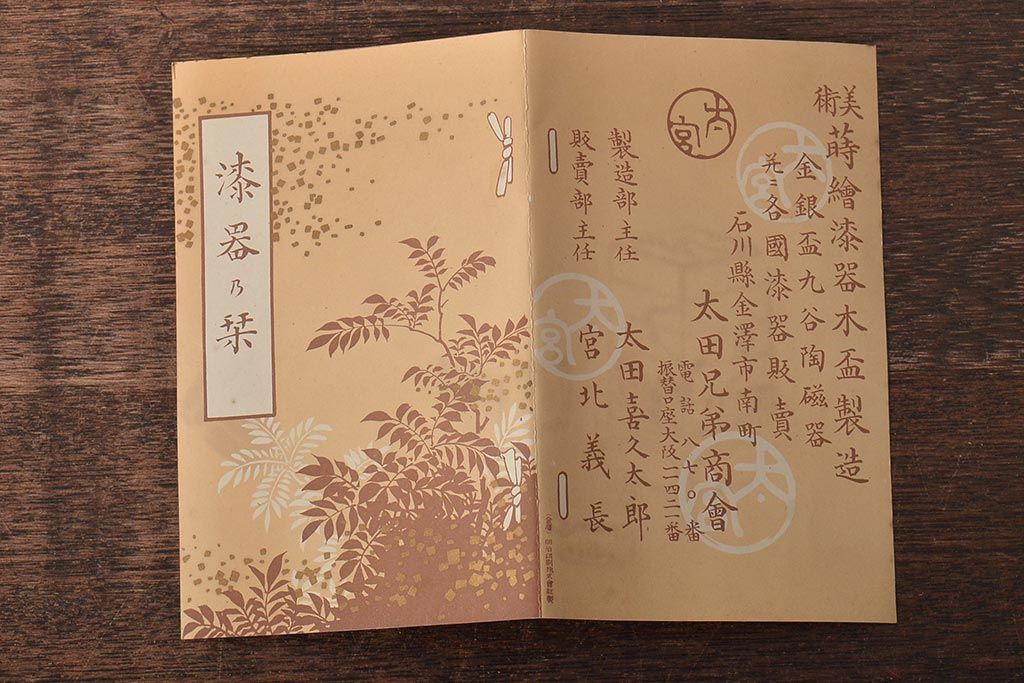 漆器乃栞
美術蒔繪漆器木盃製造
金銀盃九谷陶磁器
並ニ各國漆器販賣
石川縣金澤市南町
太田兄弟商會
電話八七〇番
振替口座大阪二一四二一番
製造部主任 太田喜久太郎
販賣部主任 宮北義長
太宮
太宮
太宮